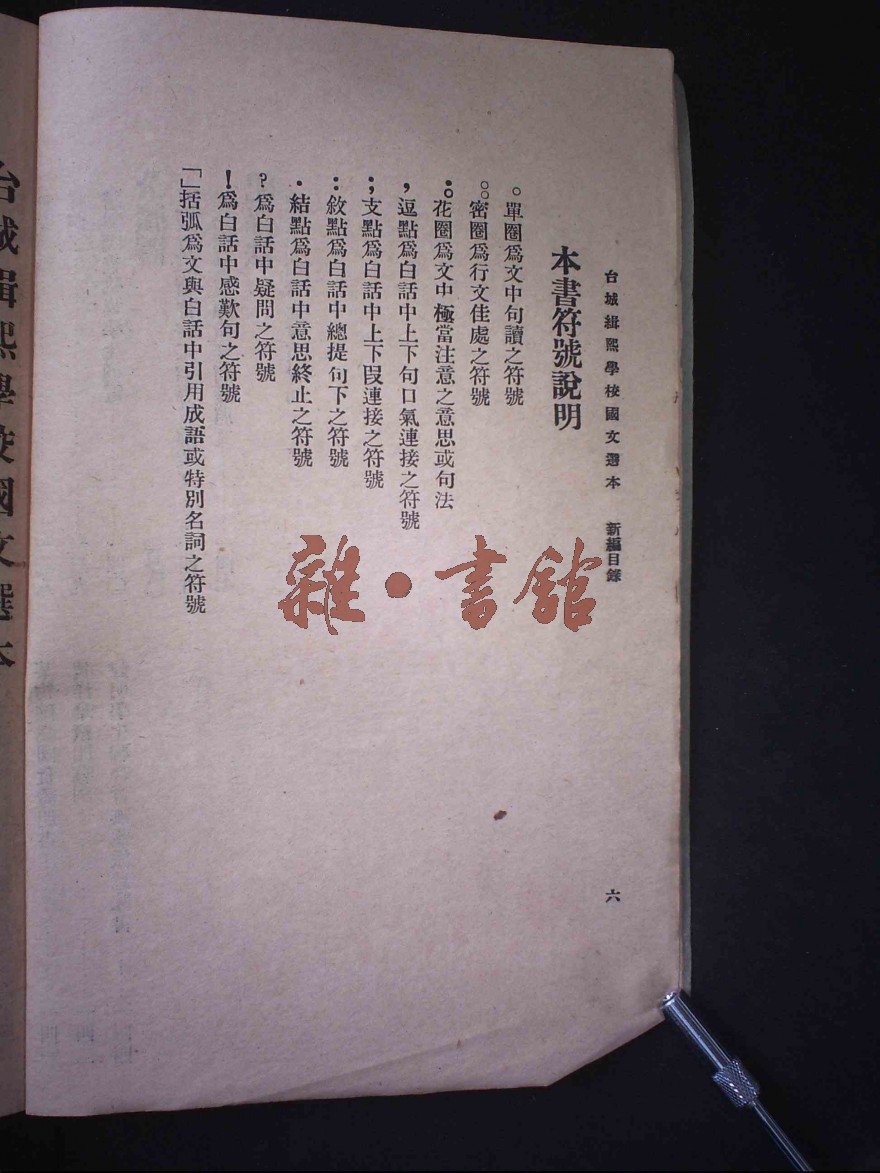 台城緝熙學校國文選本　新編目錄
六
本書符號說明
。單圈爲文中句讀之符號
○○密圈爲行文佳處之符號
•○花圈爲文中極當注意之意思或句法
，逗點爲白話中上下句口氣連接之符號
；支點爲白話中上下段連接之符號
：敘點爲白話中總提句下之符號
．結點爲白話中意思終止之符號
？爲白話中疑問之符號
！爲白話中感歎句之符號
「」括弧爲文與白話中引用成語或特別名詞之符號
台城緝熙學校國文選本
雜·書館